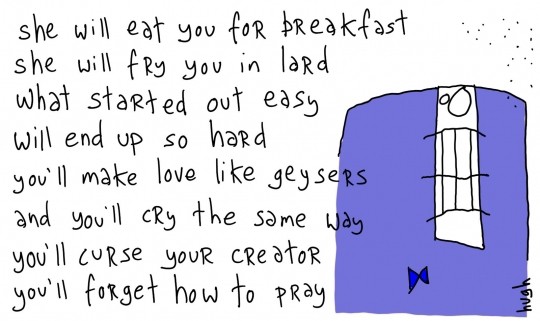 she will eat you for breakfast
she will fry you in lard
what started out easy
will end up so hard
you'll make love like geysers
and you'll cry the same way
you'll curse your creator
you'll forget how to pray
hugh